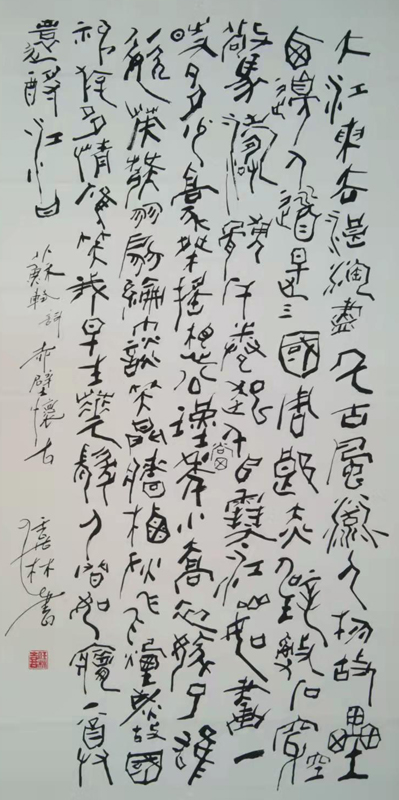 大江東去浪淘盡千古風流人物故壘
西邊人道是三國周郎赤壁亂石穿空
驚濤拍岸捲起千堆雪江山如畫一
時多少豪傑遙想公瑾當年小喬初嫁了雄
姿英發羽扇綸巾談笑間檣櫓灰飛煙滅故國
神遊多情應笑我早生華髮人間如夢一尊
還酹江月
蘇軾詞赤壁懷古
林書